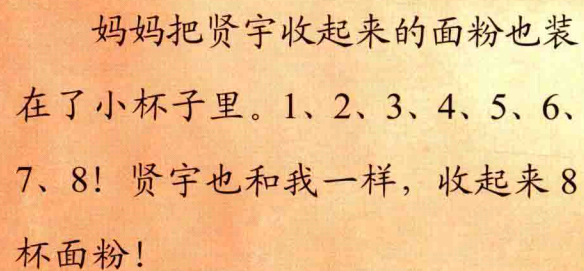 妈妈把贤宇收起来的面粉也装
在了小杯子里。1、2、3、4、5、6、
7、8！贤宇也和我一样，收起来 8
杯面粉！